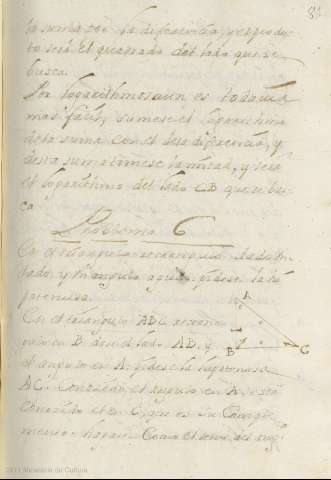 81
la suma por la diferencia, y el produc-
to será el quadrado del lado que se
busca.
Por logarithmos aun es todavia
mas facil, sumese el logarithmo
de la suma con el de la diferencia, y
desta suma tomese la mitad, y sera
el logarithmo del lado CB que se bus-
ca.
Problema 6
En el triangulo rectangulo dado un
lado, y un angulo agudo pidese la hi-
potenusa.
En el triangulo ABC rectan-
gulo en B dan el lado AB, y
el angulo en A. pidese la hypotenusa
AC. Conocido el angulo en A, está
conocido el en C, que es su Comple-
mento. hagase Como el seno del ang-
A
B
C
2011 Ministerio de Cultura